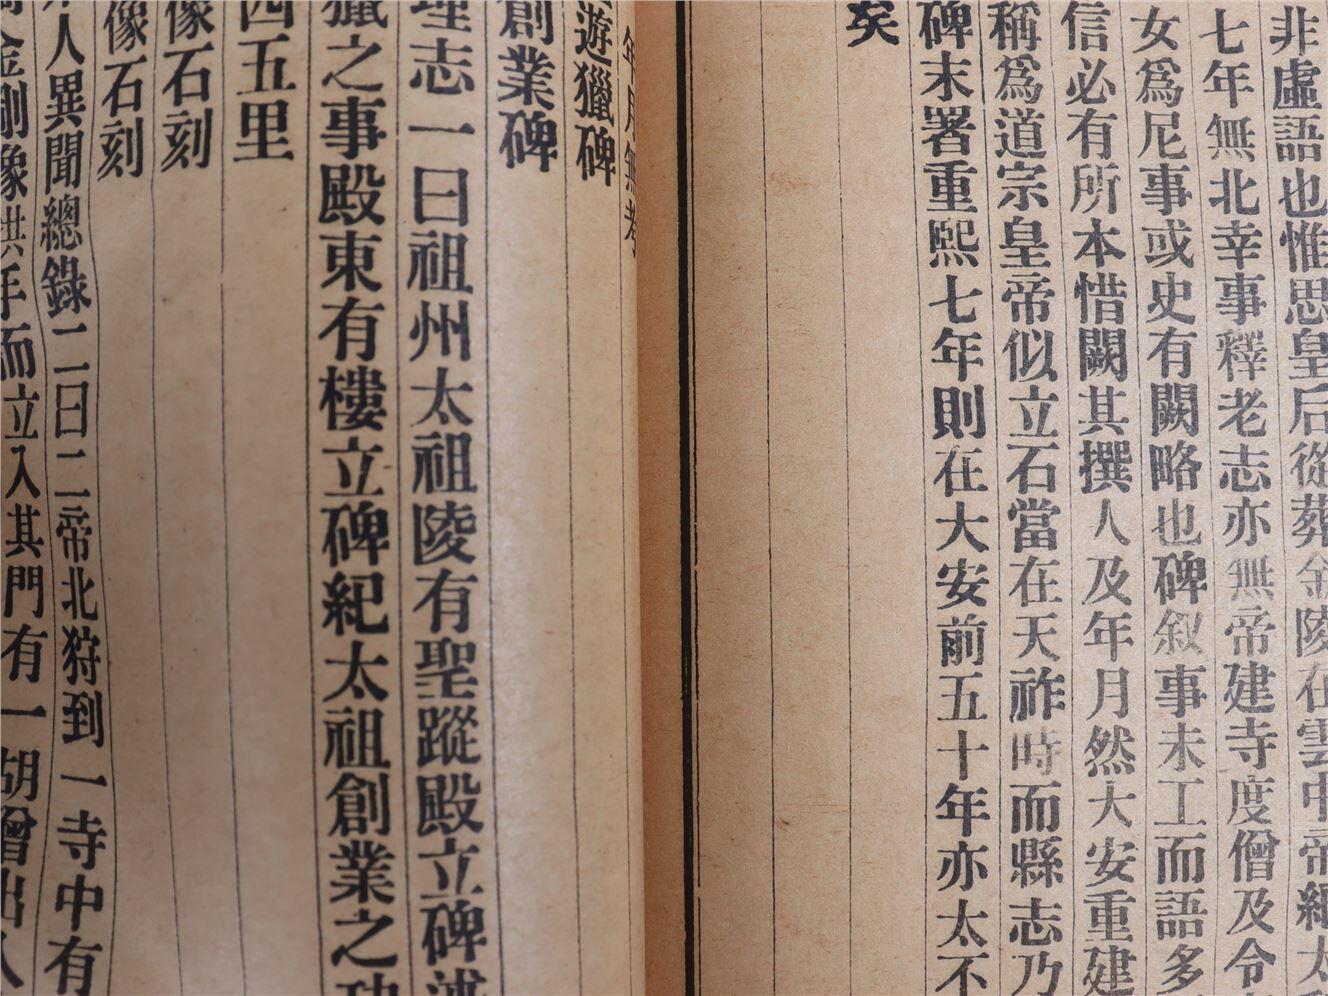 非虛語也惟思皇后從葬金陵在雲中帝紀太
七年無北幸事釋老志亦無帝建寺度僧及令
女爲尼事或史有闕略也碑叙事未工而語多
信必有所本惜闕其撰人及年月然大安重建
稱爲道宗皇帝似立石當在天祚時而縣志乃
碑末署重熙七年則在大安前五十年亦太不
矣
年月無考
遊獵碑
創業碑
理志一曰祖州太祖陵有聖蹤殿立碑述
獵之事殿東有樓立碑紀太祖創業之功
四五里
像石刻
像石刻
人異聞總錄二曰二帝北狩到一寺中有
金剛像拱手而立入其門有一胡僧出入